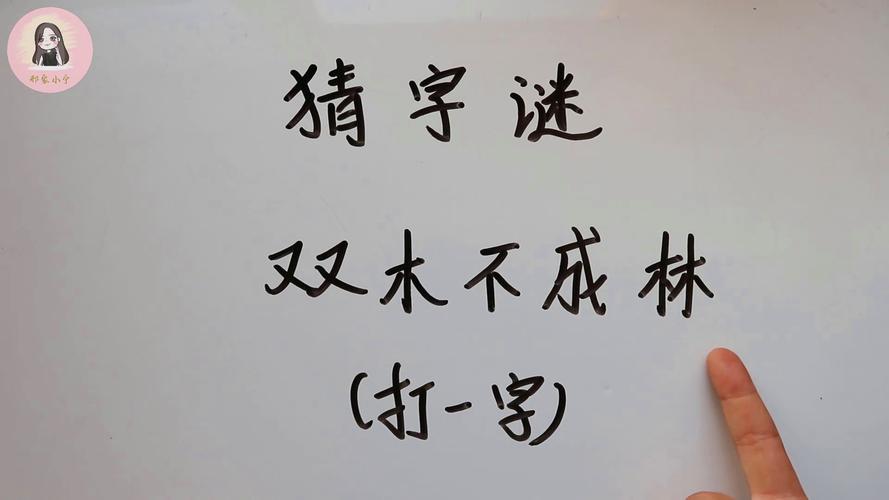 邢家小宁
猜字谜
双木不成林
(打一字)